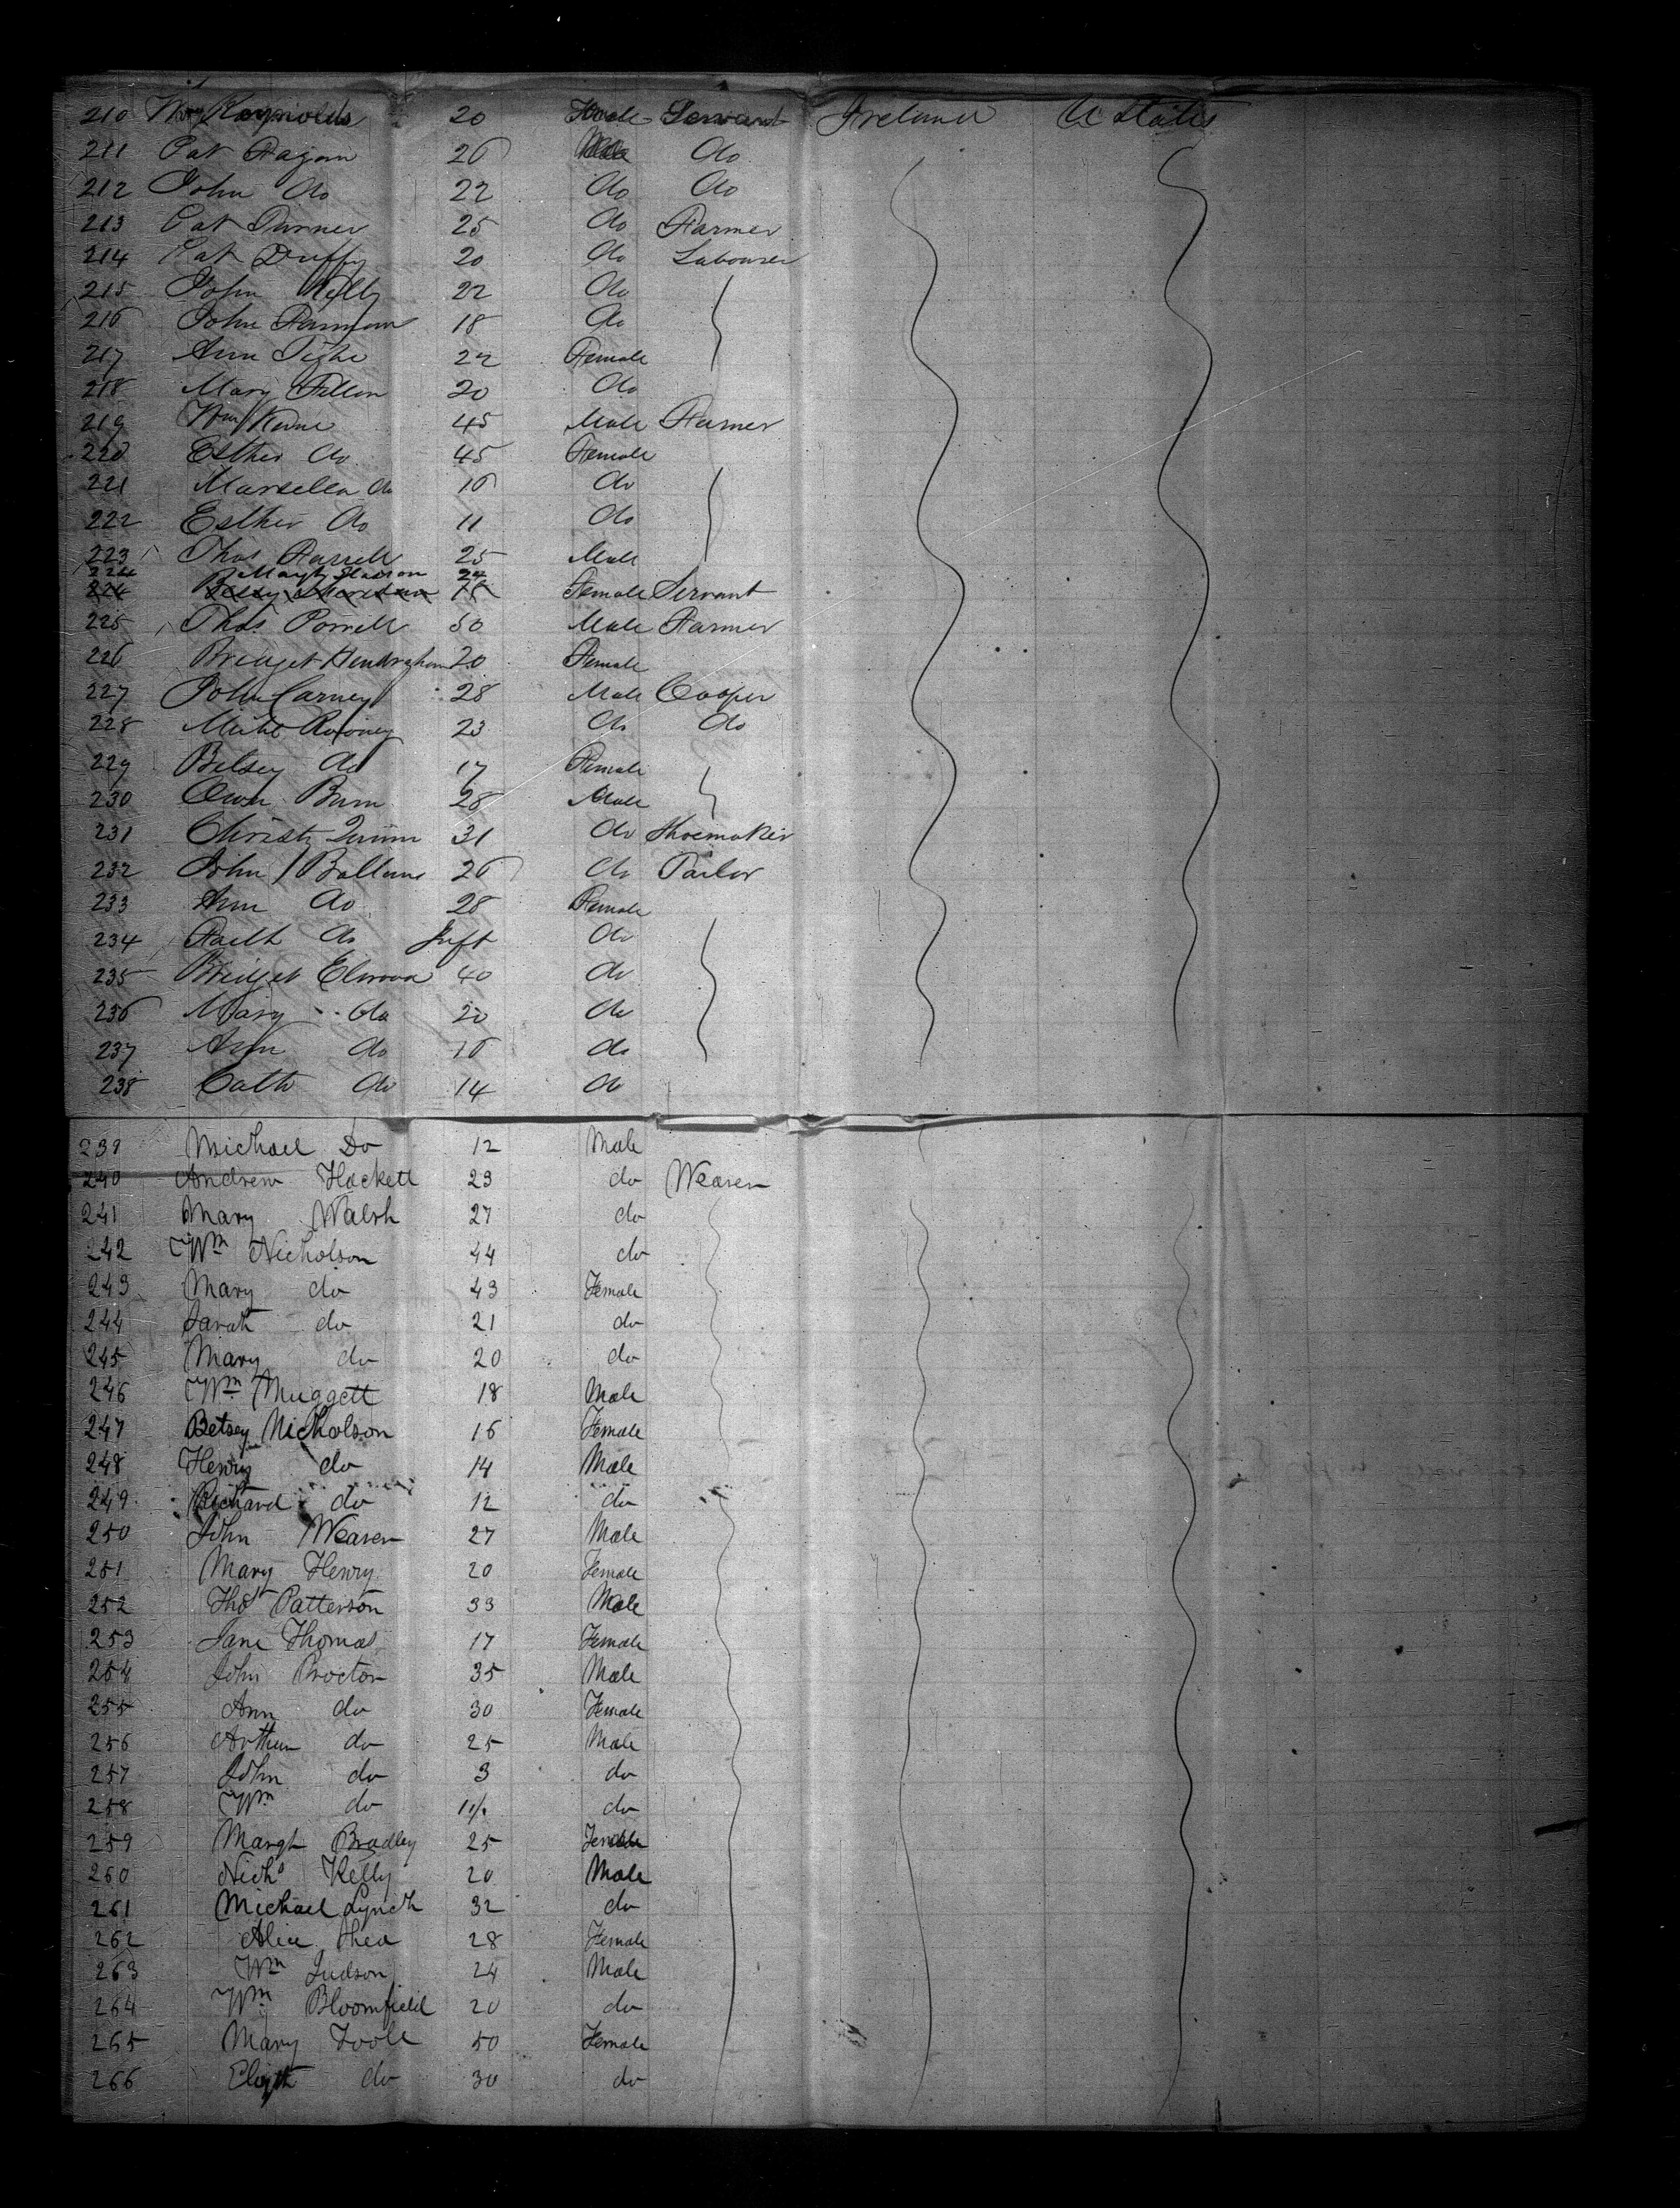 210 Reynolds 20 Male Servant Ireland U States
211 Pat Fagan 26 Male do
212 John do 22 do do
213 Pat Turner 25 do Farmer
214 Pat Duffy 20 do Labourer
215 John Kelly 22 do
216 John 18 do
217 Ann Tighe 22 Female
218 Mary Fillon 20 do
219 Wm Keine 45 Male Farmer
220 Esther do 45 Female
221 Marsella do 16 do
222 Esther do 11 do
223 Thos Farrell 25 Male
224 24
224 Female Servant
225 Thos. Porrell 50 Male Farmer
226 Bridget 20 Female
227 John Carney 28 Male Cooper
228 Mich Rooney 23 do do
229 Betsey do 17 Female
230 Owen Burn 28 Male
231 Christy Quinn 31 do Shoemaker
232 John 26 do Tailor
233 Ann do 28 Female
234 do Inft do
235 Bridget 40 do
236 Mary do 20 do
237 Ann do 16 do
238 Cath do 14 do
239 Michael Do 12 Male
240 Andrew Hackett 23 do Weaver
241 Mary Walsh 27 do
242 Wm Nicholson 44 do
243 Mary do 43 Female
244 Sarah do 21 do
245 Mary do 20 do
246 Wm Muggett 18 Male
247 Betsey Nicholson 16 Female
248 Henry do 14 Male
249 Richard do 12 do
250 John Weaver 27 Male
251 Mary Henry 20 Female
252 Thos Patterson 33 Male
253 Jane Thomas 17 Female
254 John Procter 35 Male
255 Ann do 30 Female
256 Arthur do 25 Male
257 John do 3 do
258 Wm do do
259 Margt Bradley 25 Female
260 Nichs Kelly 20 Male
261 Michael Lynch 32 do
262 Alice Shea 28 Female
263 Wm Judson 24 Male
264 Wm Bloomfield 20 do
265 Mary Toole 50 Female
266 do 30 do